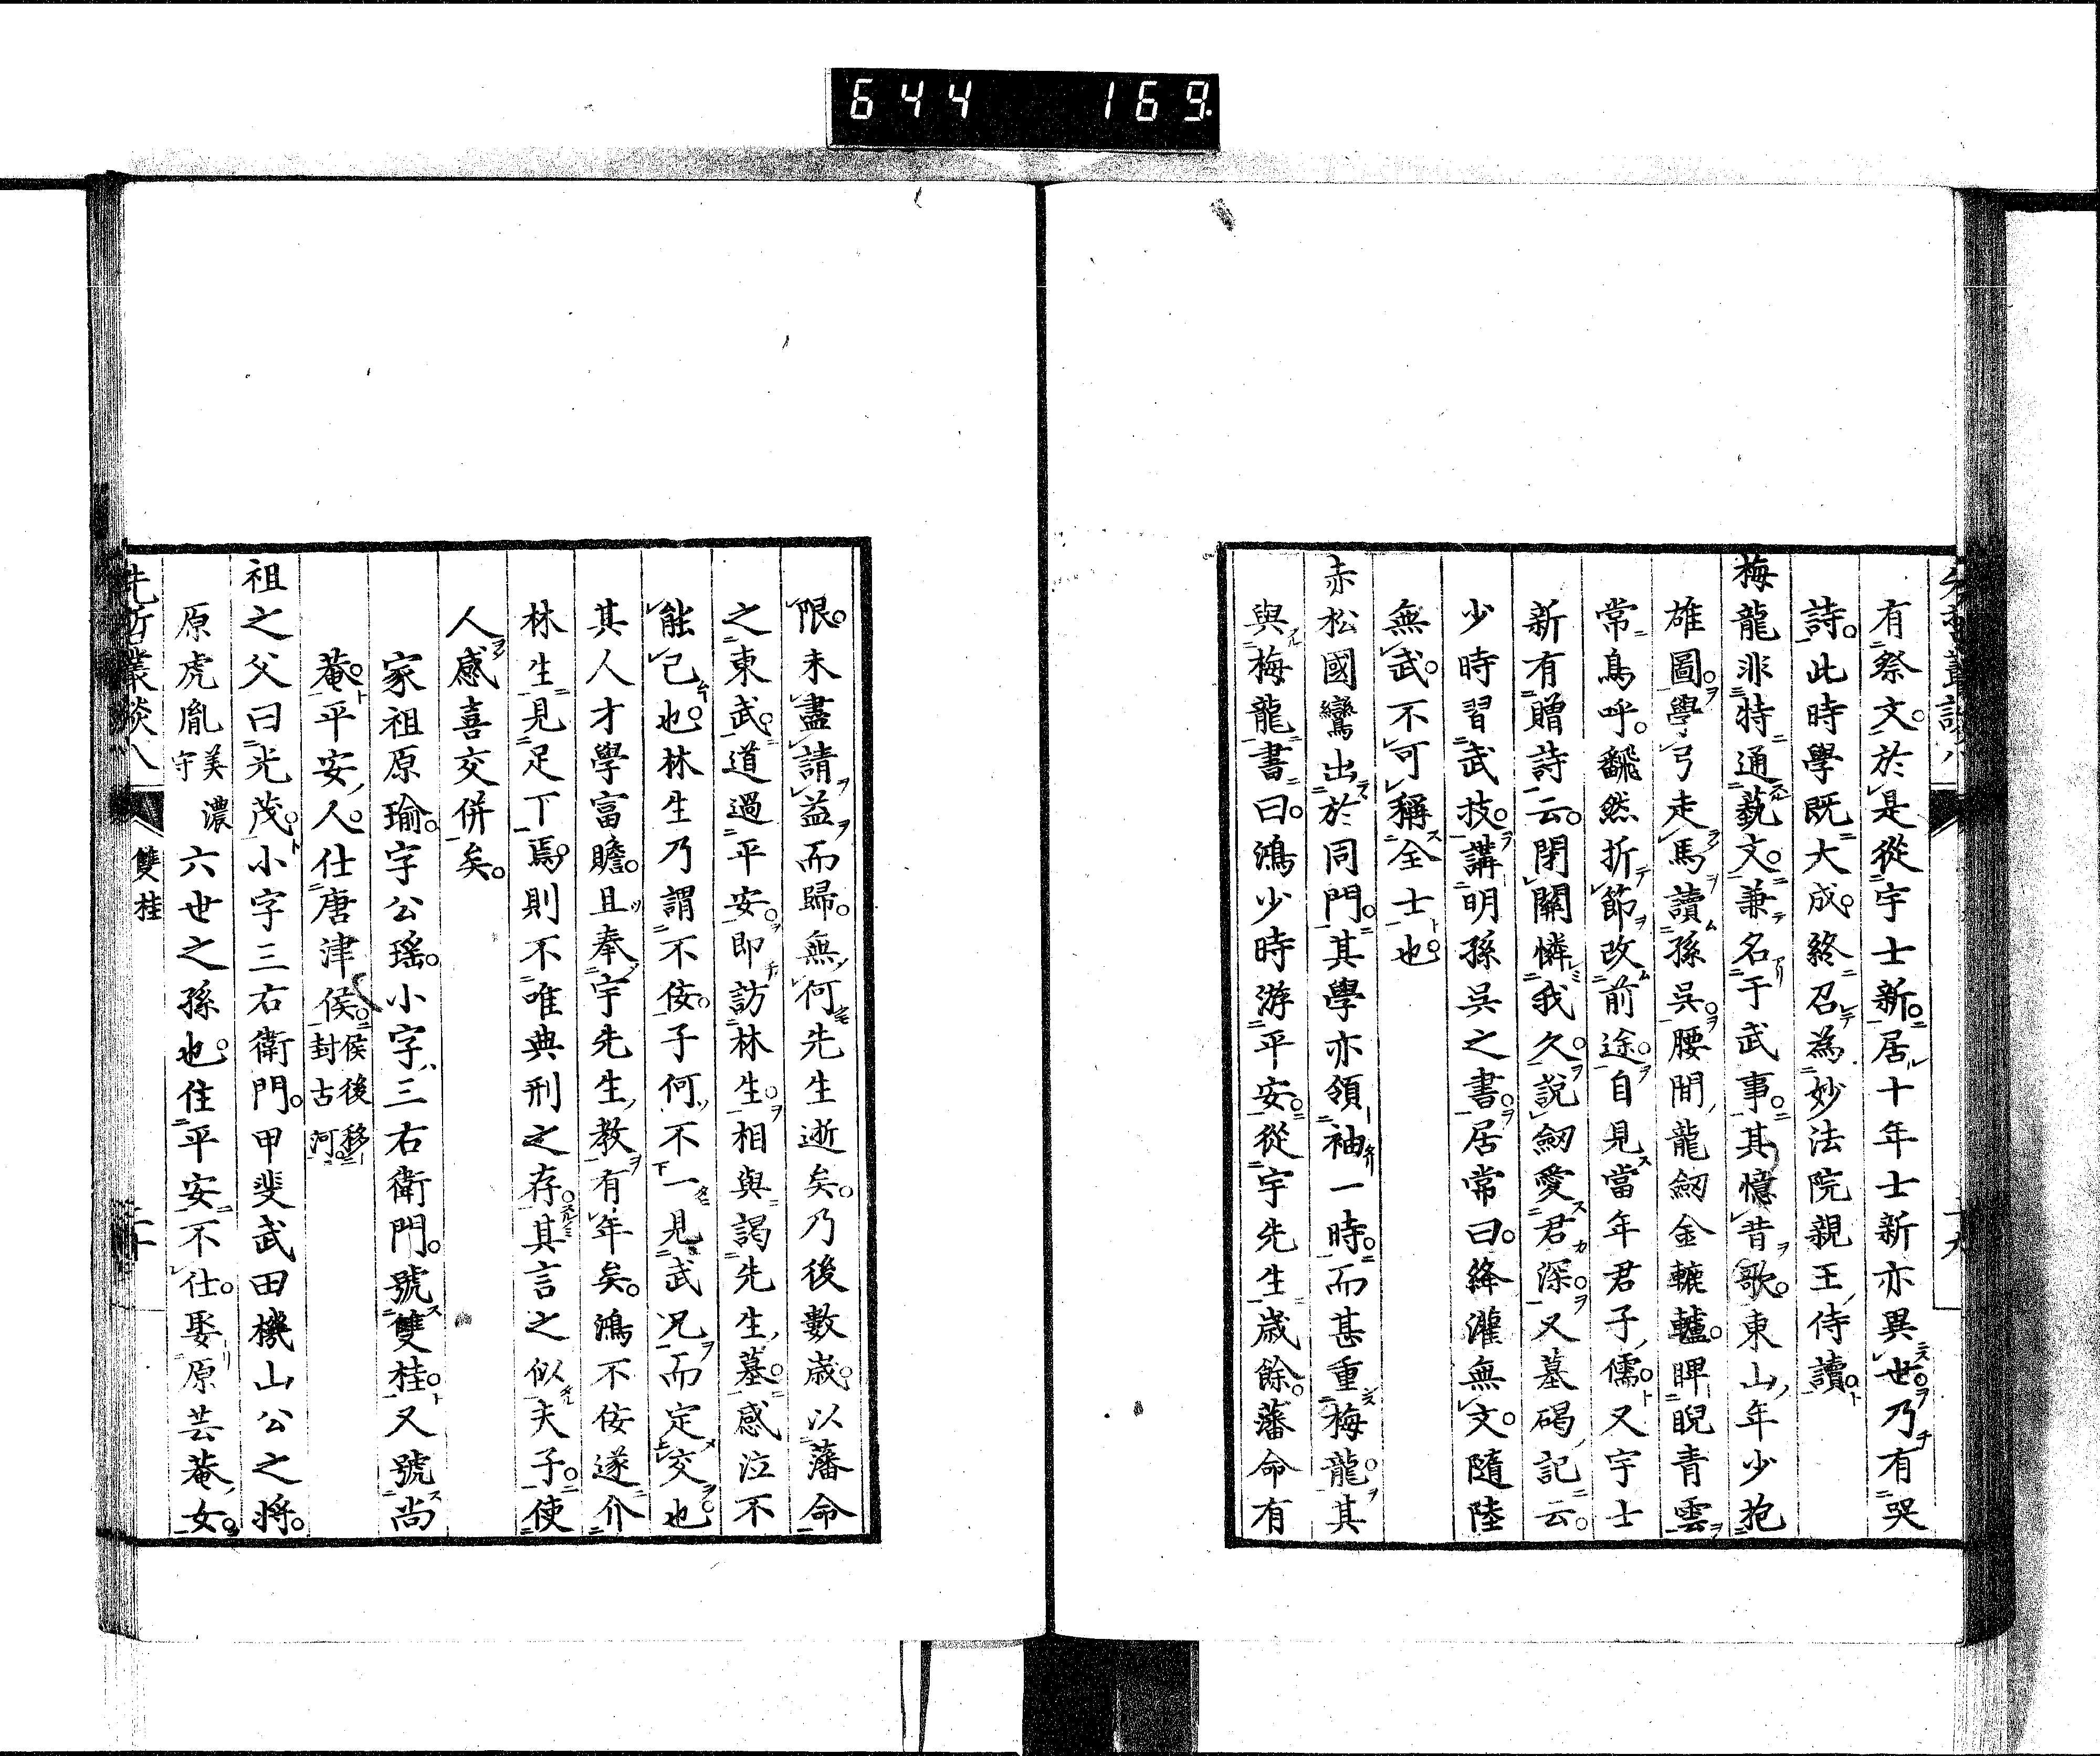 644 169
有祭文。於是從宇士新。居十年士新亦異世。乃有哭
詩。此時學既大成。終召為妙法院親王侍讀。
梅龍非特通藝文。兼名于武事。其憶昔歌。東山年少抱
雄圖。學弓走馬讀孫吳。腰間龍劒金轆轤。睥睨青雲
常鳥呼。飜然折節改前途。自見當年君子儒。又宇士
新有贈詩云。閉關憐我久。說劒愛君深。又墓碣記云。
少時習武技。講明孫吳之書。居常曰。絳灌無文。隨陸
無武。不可稱全士也。
赤松國鸞出於同門。其學亦領袖一時。而甚重梅龍。其
與梅龍書曰。鴻少時游平安。從宇先生歳餘。藩命有
限。未盡請益而歸。無何先生逝矣。乃後數歳。以藩命
之東武。道過平安。即訪林生。相與謁先生墓。感泣不
能已也。林生乃謂不佞。子何不一見武兄而定交也。
其人才學富贍。且奉宇先生教有年矣。鴻不佞遂介
林生見足下焉。則不唯典刑之存。其言之似夫子。使
人感喜交併矣。
家祖原瑜。字公瑶。小字三右衛門。號雙桂。又號尚
菴。平安人。仕唐津侯。侯後移封古河。
祖之父曰光茂。小字三右衛門。甲斐武田機山公之將。
原虎胤美濃守六世之孫也。住平安不仕。娶原芸菴女。
先哲叢談八 雙桂